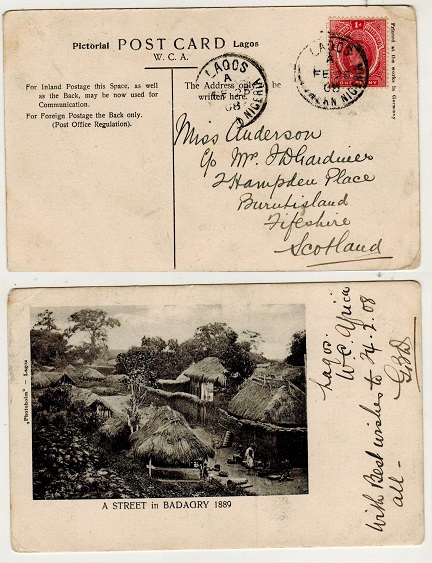 Pictorial POST CARD Lagos
W. C. A.
For Inland Postage this Space, as well
as the Back, may be now used for
Communication.
For Foreign Postage the Back only.
(Post Office Regulation).
The Address only
written here.
LAGOS
A
08
NIGERIA
1d
LAGOS
A
FE
08
NIGERIA
Printed at the works in Germany
Miss Anderson
c/o Mr.
2 Hampden Place
Burntisland
Fifeshire
Scotland
"Photoholm" - Lagos
A STREET in BADAGRY 1889
Lagos.
W. C. Africa
With Best wishes to
all -